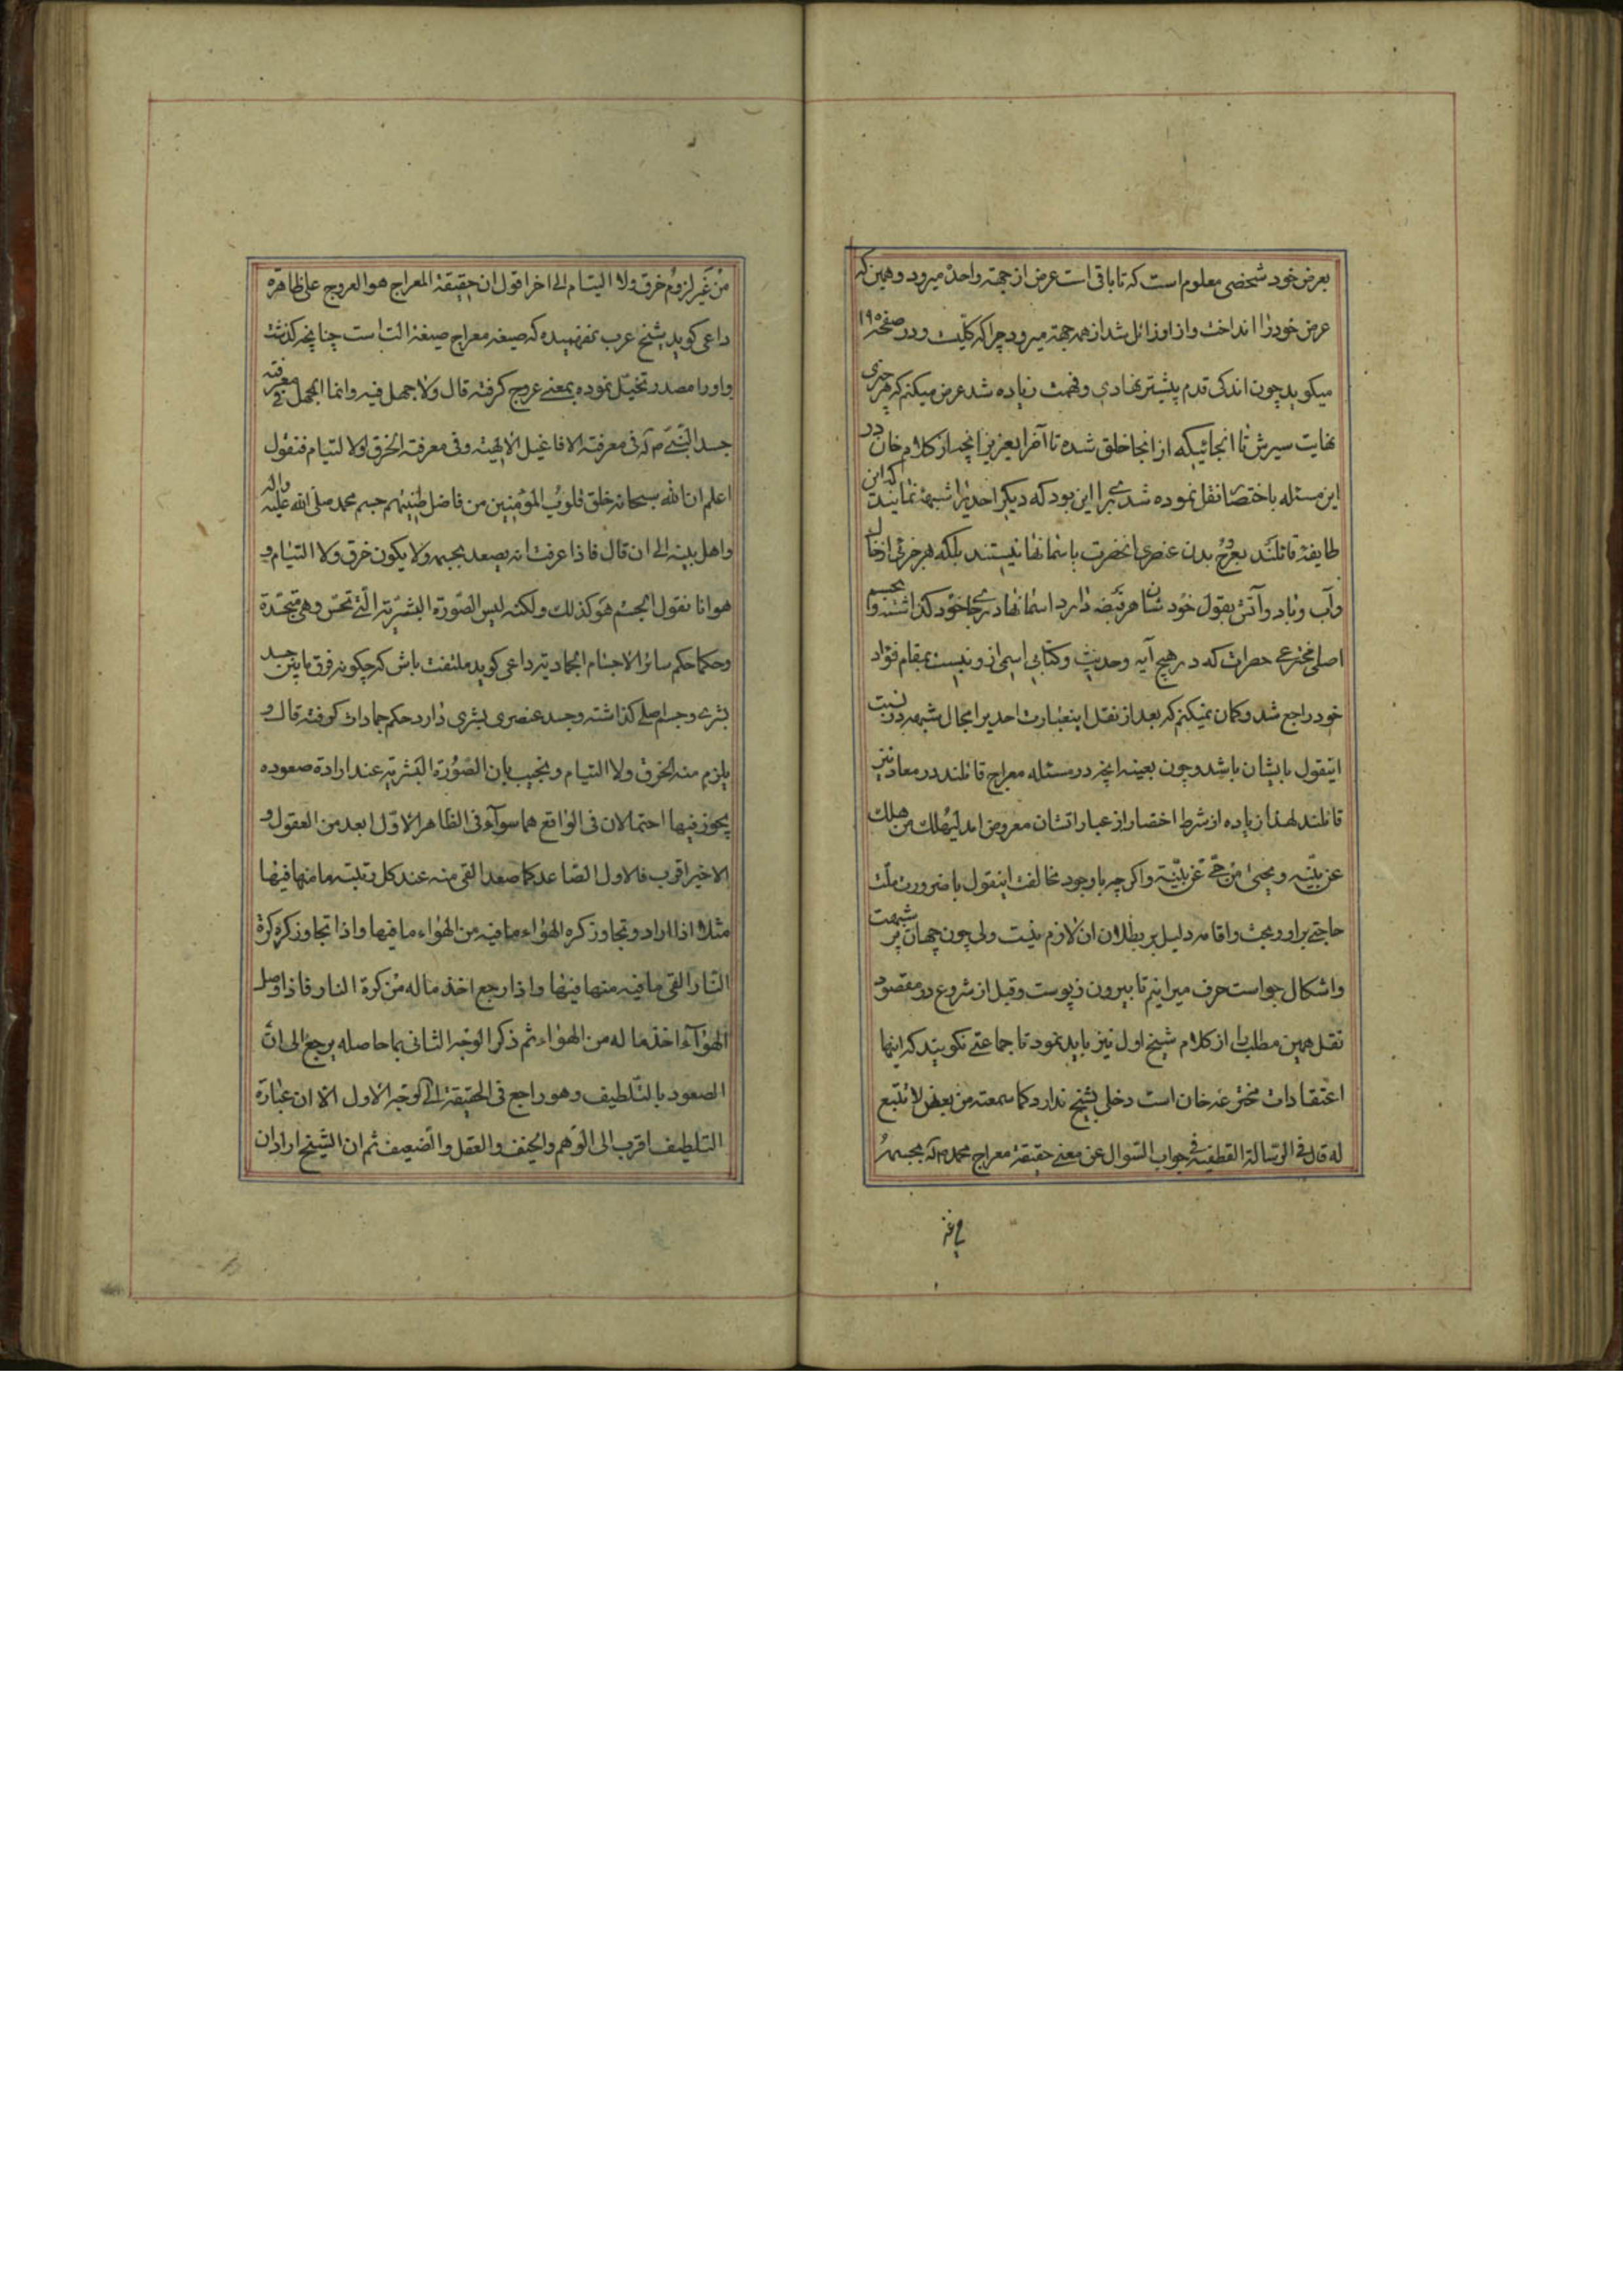 بعرض خود شخصی معلوم است که تا باقی است عرض از جهة واحده میرود و همین که
عرض خود را انداخت و از او زائل شد از همه جهة میرود چرا که کلّیت و در صفحه ۱۹۵
میکوید چون اندکی قدم پیشتر نهادی و فهمت زیاده شد عرض میکنم که هر چیزی
نهایت سیرش تا انجائیکه از انجا خلق شده تا آخر ایعزیز انچه از کلام خان در
این مسئله باختصار نقل نموده شد برای این بود که دیگر احدیرا شبهه نماند که این
طایفه قائلند بعروج بدن عنصری انحضرت باسمانها نیستند بلکه هر جزئی از خاک
و آب و باد و آتش بقول خود شان هر قبضه دارد اسمانها در جا خود کذاشته و بجسم
اصلی مخترعی حضرات که در هیچ آیه و حدیث و کتابی اسمی از و نیست بمقام فؤاد
خود راجع شد و کمان نمیکنم که بعد از نقل اینعبارت احدیرا مجال شبهه در نسبت
اینقول بایشان باشد و چون بعینه انچه در مسئله معراج قائلند در معاد نیز
قائلند لهذا زیاده از شرط اختصار از عباراتشان معروض امد لیهلک من هلک
عن بیّنه و یحیی من حیّ عن بیّنة و اکر چه باوجود مخالفت اینقول با ضرورت ملّت
حاجتی برا و و بحث و اقامه دلیل بر بطلان ان لازم نیست ولی چون جهان پر شبهت
و اشکال جو است حرف میرانیم تا بیرون ز پوست و قبل از شروع در مقصود
نقل همین مطلب را از کلام شیخ اول نیز باید نمود تا جماعتی نکویند که اینها
اعتقادات مخترعه خان است دخلی بشیخ ندارد کما سمعته من بعض لا تتبع
له قال فی الرسالة القطیفیه فی جواب السّوال عن معنی حقیقة معراج محمد ص آله بجسمه
من غیر
من غیر لزوم خرق ولا التیام الی اخر اقول ان حقیقة المعراج هو العروج علی ظاهره
داعی کوید شیخ عرب نفهمیده که صیغه معراج صیغه الت است چنانچه کذشت
و او را مصدر تخیّل نموده بمعنی عروج کرفته قال ولا جهل فیه وانما الجهل فی معرفة
جسد النّبی ص آله فی معرفة الافاعیل الالهیّه وفی معرفة الخرق والالتیام فنقول
اعلم ان الله سبحانه خلق قلوب المؤمنین من فاضل طینتهم جسم محمد صلی الله علیه واله
واهل بیته الی ان قال فاذا عرفت انه یصعد بجسمه ولا یکون خرق ولا التیام و
هو انا نقول الجسم هو کذلک ولکنه لیس الصّورة البشریّة الّتی تحسّ وهی متجسّدة
وحکمها حکم سائر الاجسام الجمادیة داعی کوید ملتفت باش که چکونه فرق مابین جسد
بشری و جسم اصلی کذاشته و جسد عنصری بشری دارد حکم جمادات کوفته قال و
یلزم منه الخرق ولا التیام ونجیب بان الصّورة البشریّه عند ارادة صعوده
یجوز فیها احتمالان فی الواقع هما سوآء فی الظاهر الاوّل ابعد من العقول و
الاخیر اقرب فالاول الصّاعد کلما صعد القی منه عند کل رتبته ما منها فیها
مثلا اذا اراد و تجاوز کره الهواء ما فیه من الهواء ما فیها واذا تجاوز کره کرة
النّار القی ما فیه منها فیها واذا رجع اخذ ماله من کرة النار فاذا وصل
الهوآء اخذ ما له من الهواء ثم ذکر الوجه الثانی بما حاصله یرجع الی انّ
الصعود بالتّلطیف وهو راجع فی الحقیقة الی الوجه الاول الا ان عبارة
التلطیف اقرب الی الوهم والخیف والعقل والضعیف ثم ان الشیخ اراد ان